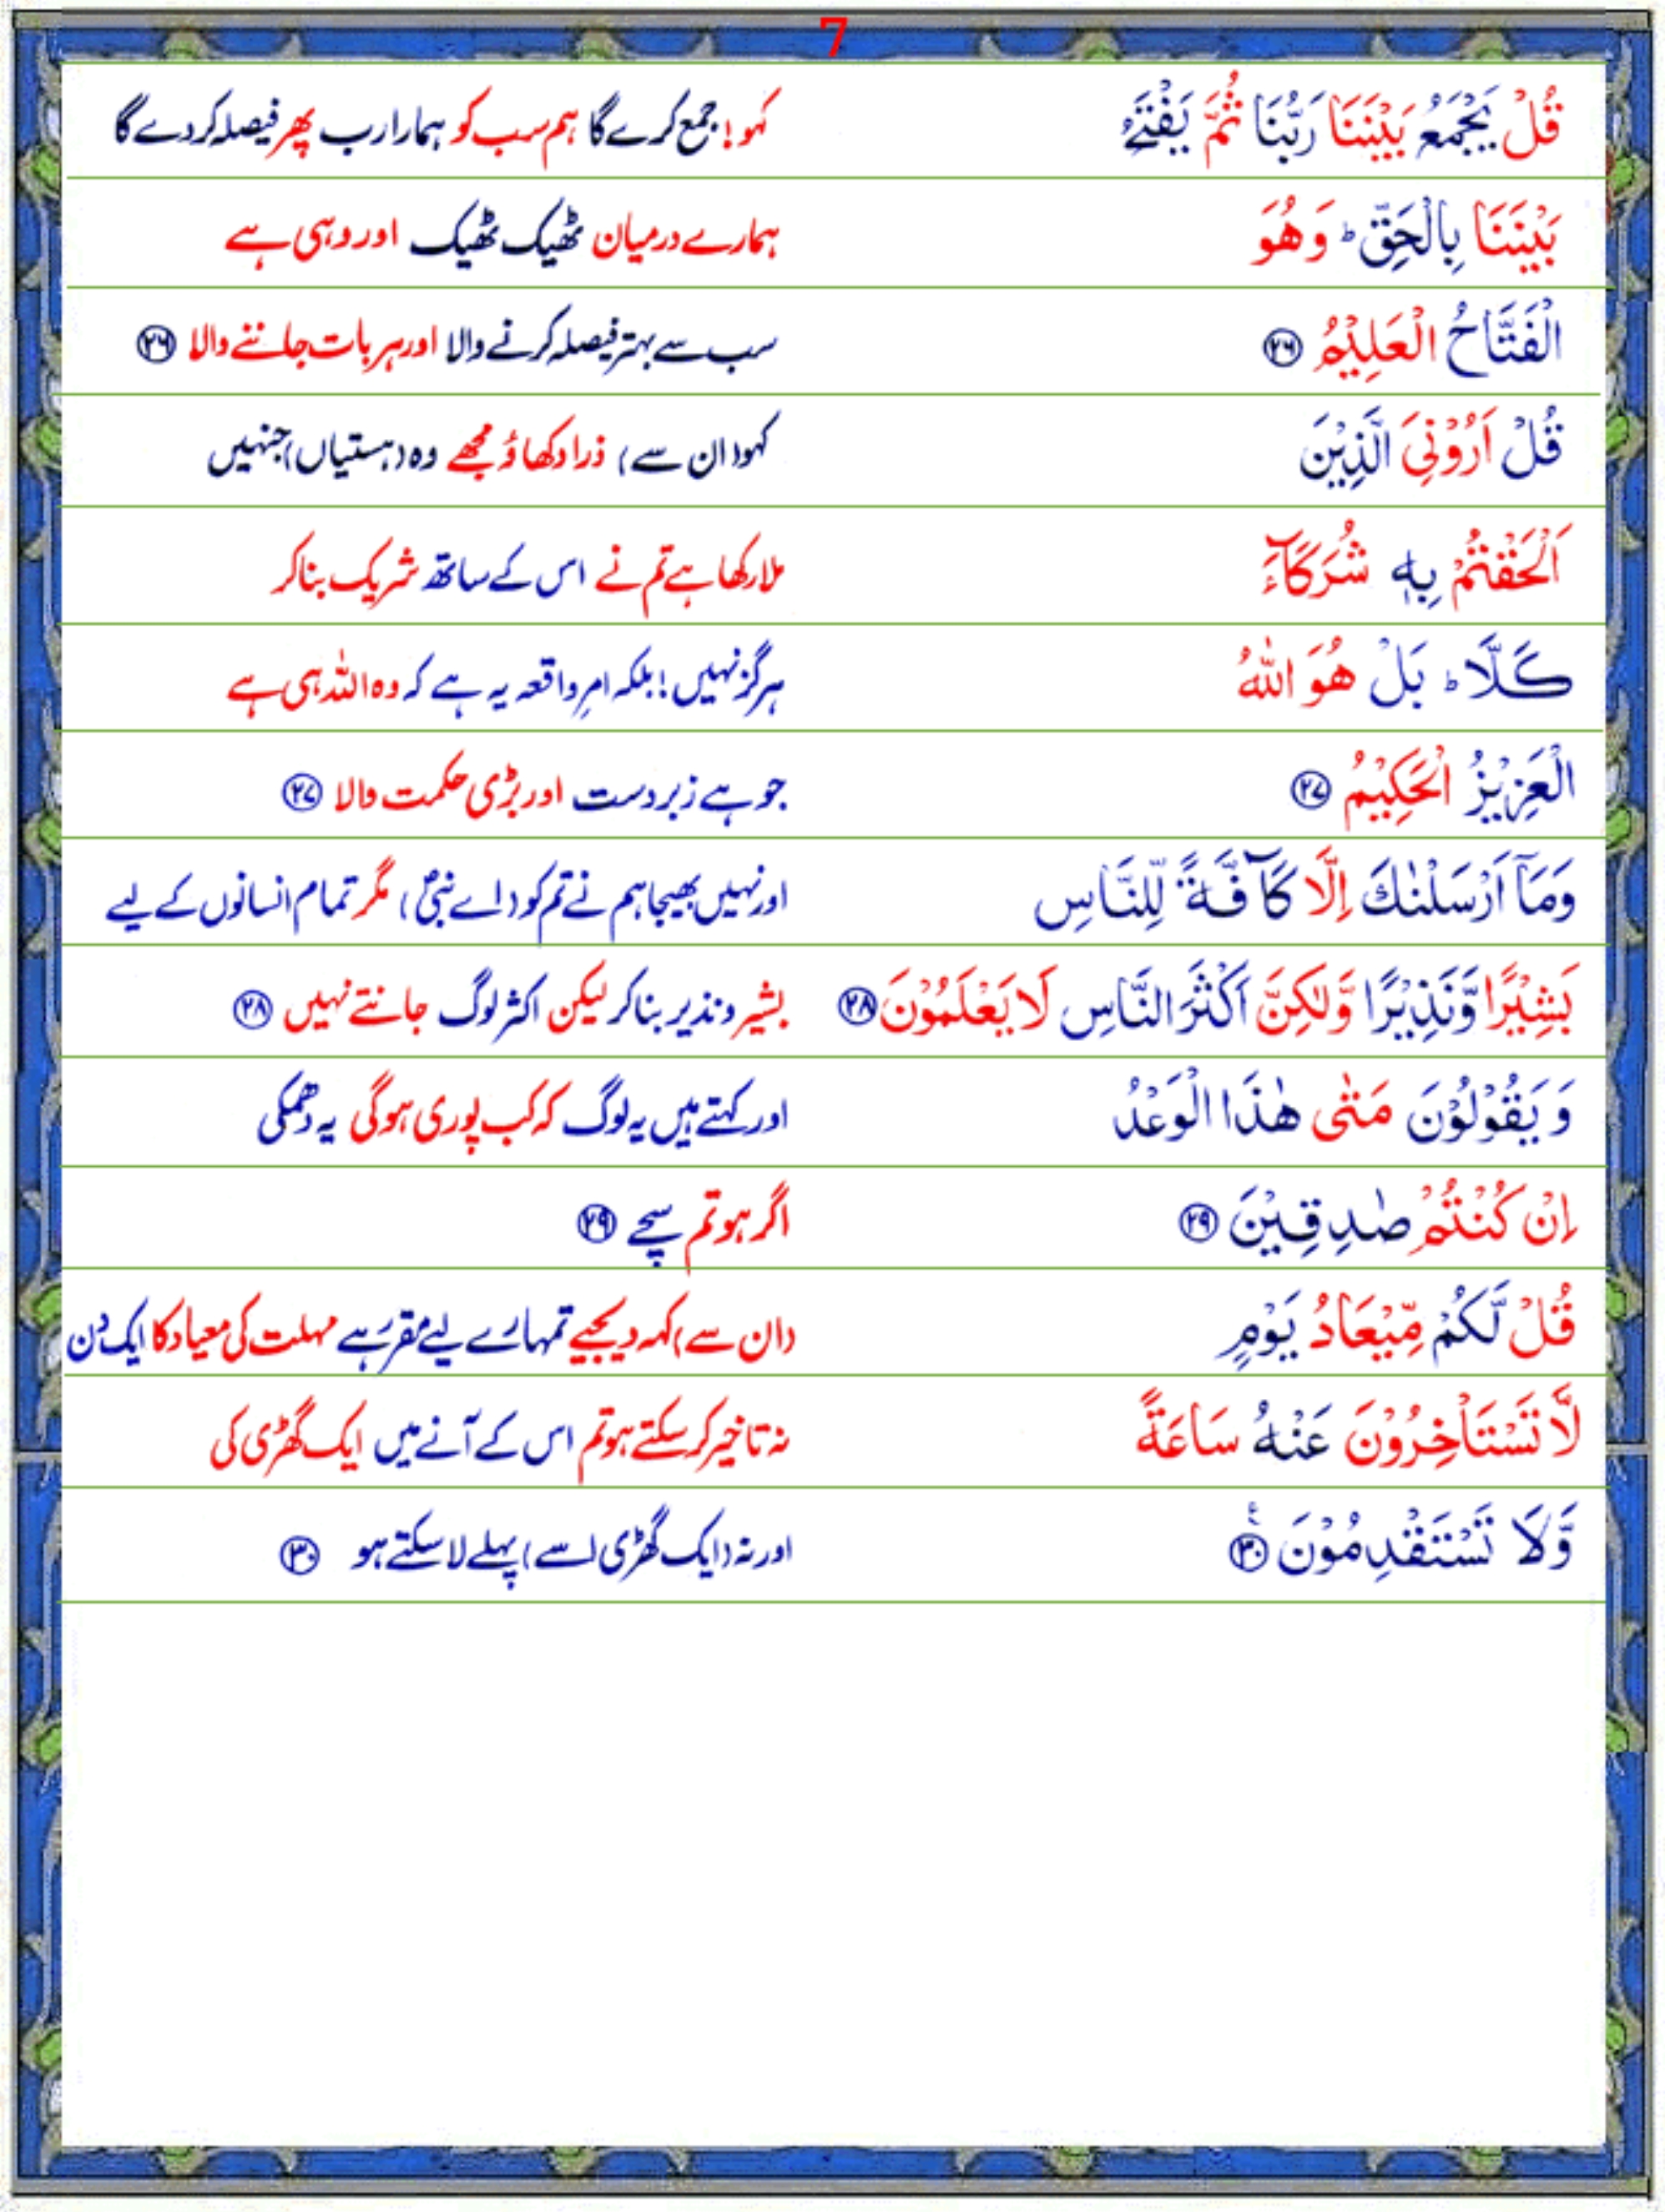 7
قُلْ يَجْمَعُ بَيْنَنَا رَبُّنَا ثُمَّ يَفْتَحُ کہو! جمع کرے گا ہم سب کو ہمارا رب پھر فیصلہ کردے گا
بَيْنَنَا بِالْحَقِّ ؕ وَهُوَ ہمارے درمیان ٹھیک ٹھیک اور وہی ہے
الْفَتَّاحُ الْعَلِيْمُ ۲۶ سب سے بہتر فیصلہ کرنے والا اور ہر بات جاننے والا ۲۶
قُلْ اَرُوْنِيَ الَّذِيْنَ کہو (ان سے) ذرا دکھاؤ مجھے وہ (ہستیاں) جنہیں
اَلْحَقْتُمْ بِهٖ شُرَكَآءَ ملا رکھا ہے تم نے اس کے ساتھ شریک بنا کر
كَلَّا ؕ بَلْ هُوَ اللّٰهُ ہرگز نہیں! بلکہ امرِ واقعہ یہ ہے کہ وہ اللہ ہی ہے
الْعَزِيْزُ الْحَكِيْمُ ۲۷ جو ہے زبردست اور بڑی حکمت والا ۲۷
وَمَآ اَرْسَلْنٰكَ اِلَّا كَآفَّةً لِّلنَّاسِ اور نہیں بھیجا ہم نے تم کو (اے نبیؐ) مگر تمام انسانوں کے لیے
بَشِيْرًا وَّنَذِيْرًا وَّلٰكِنَّ اَكْثَرَ النَّاسِ لَا يَعْلَمُوْنَ ۲۸ بشیر و نذیر بنا کر لیکن اکثر لوگ جانتے نہیں ۲۸
وَيَقُوْلُوْنَ مَتٰى هٰذَا الْوَعْدُ اور کہتے ہیں یہ لوگ کہ کب پوری ہوگی یہ دھمکی
اِنْ كُنْتُمْ صٰدِقِيْنَ ۲۹ اگر ہو تم سچے ۲۹
قُلْ لَّكُمْ مِّيْعَادُ يَوْمٍ (ان سے) کہہ دیجیے تمہارے لیے مقرر ہے مہلت کی میعاد کا ایک دن
لَّا تَسْتَاْخِرُوْنَ عَنْهُ سَاعَةً نہ تاخیر کر سکتے ہو تم اس کے آنے میں ایک گھڑی کی
وَّلَا تَسْتَقْدِمُوْنَ ۳۰ ع اور نہ (ایک گھڑی اسے) پہلے لا سکتے ہو ۳۰